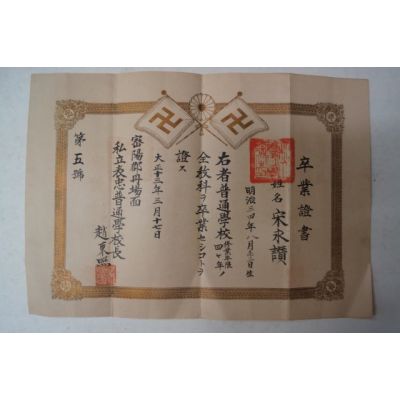 卒業證書
姓名 宋永讚
明治三四年八月二日生
右者普通學校修業年限四ケ年ノ
全敎科ヲ卒業セシコトヲ
證ス
大正十三年三月十七日
密陽郡丹場面
私立表忠普通學校長
趙東
第五號